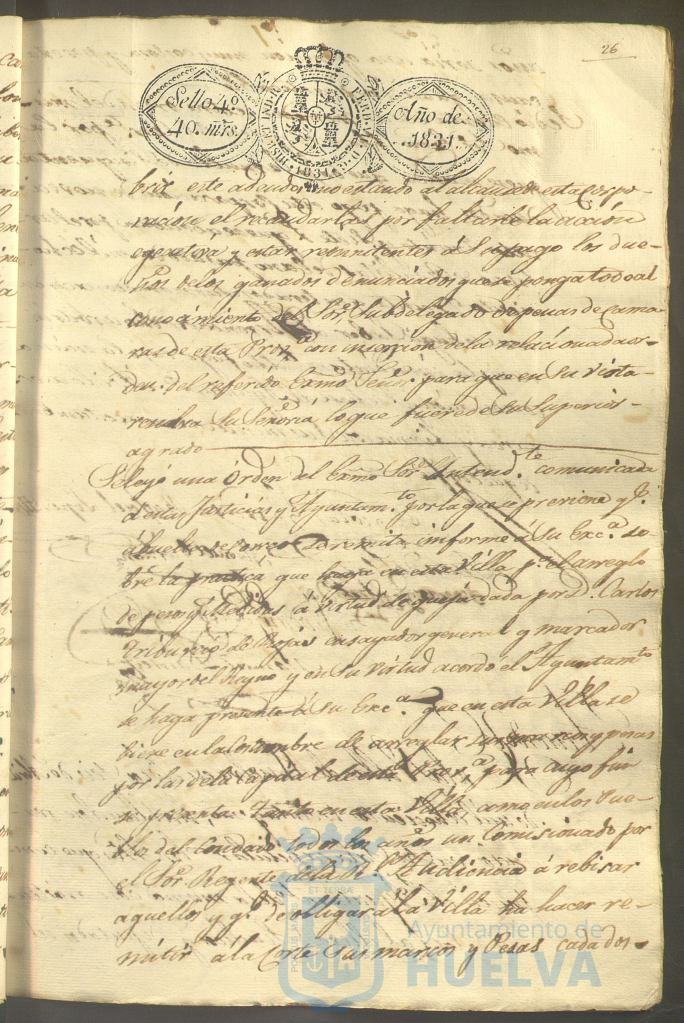 26
Sello 4º
40. mrs.
Año de
1831.
1831
este no estando al alcance de esta Corpo-
racion el por faltarle la accion
egecutiva y estar renuentes á su pago los due-
ños de los ganados denunciados que se ponga todo al
conocimiento del Sor. Subdelegado de penas de Cama-
ras de esta Prova. con insercion de la relacionada or-
den del referido Exmo Señor. para que en su vista
resuelva Su Señoria lo que fuere de su superior
agrado
Se leyó una Orden del Exmo Sor. Yntendte. comunicada
a estas Justicias y Ayuntamto. por la que se previene qe.
á buelta de correo se remita informe á Su Exca. so-
bre la practica que haya en esta Villa pa. el arreglo
de pesos y medidas á virtud de queja dada por D. Carlos
Tiburcio de Rojas ensayador general y marcador
mayor del Reyno y en su virtud acordo el Ayuntamto
se haga presente á Su Exca. que en esta Villa se
en la costumbre de arreglar sus y pesas
por las de la Capital de esta Prova. para cuyo fin
se presenta tanto en esta Villa como en los Pue-
blos del Condado todos los años un Comisionado por
el Sor. Regente de la Rl. Audiencia á rebisar
aquellos y qe. de obligar á la Villa ha hacer re-
mitir á la Corte sus marcos y Pesas cada dos
Ayuntamiento de
HUELVA